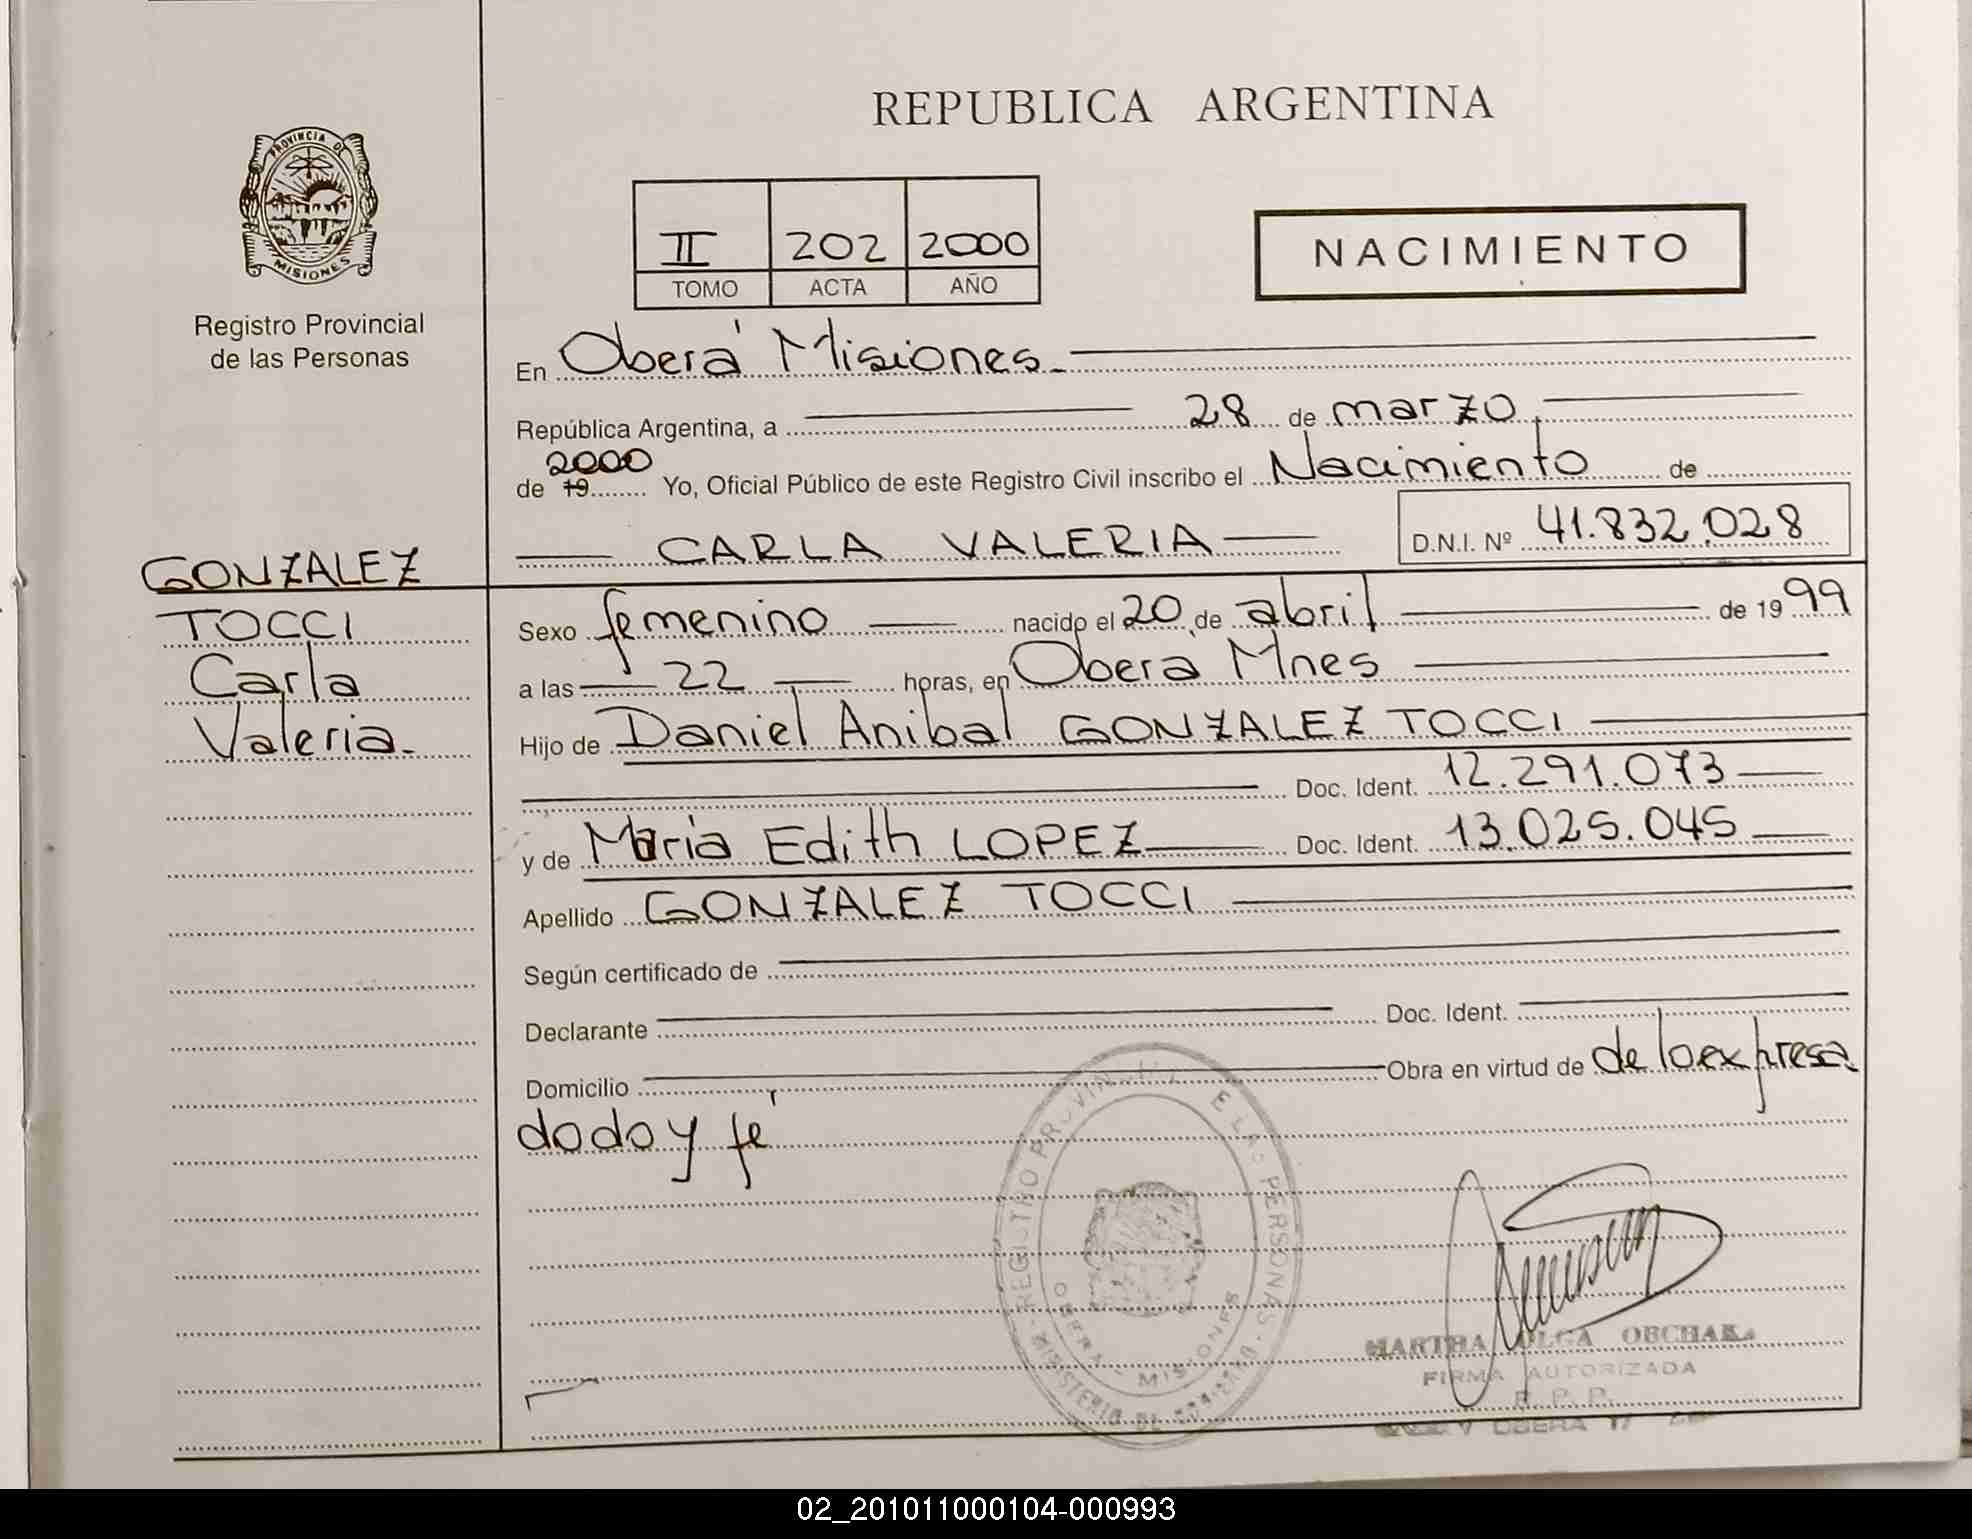 REPUBLICA ARGENTINA
PROVINCIA DE
MISIONES
Registro Provincial
de las Personas
II 202 2000
TOMO ACTA AÑO
NACIMIENTO
En Oberá Misiones.
República Argentina, a 28 de marzo
2000
de 19 Yo, Oficial Público de este Registro Civil inscribo el Nacimiento de
CARLA VALERIA D.N.I. Nº 41.832.028
GONZALEZ
TOCCI
Carla
Valeria.
Sexo femenino nacido el 20 de abril de 1999
a las 22 horas, en Oberá Mnes
Hijo de Daniel Anibal GONZALEZ TOCCI
Doc. Ident. 12.291.073
y de Maria Edith LOPEZ Doc. Ident. 13.025.045
Apellido GONZALEZ TOCCI
Según certificado de
Declarante Doc. Ident.
Domicilio Obra en virtud de de lo expresa
do doy fé
REGISTRO PROVINCIAL DE LAS PERSONAS
MINISTERIO DE
OBERA MISIONES
MARTHA OLGA
FIRMA AUTORIZADA
R. P. P.
OBERA
02_201011000104-000993